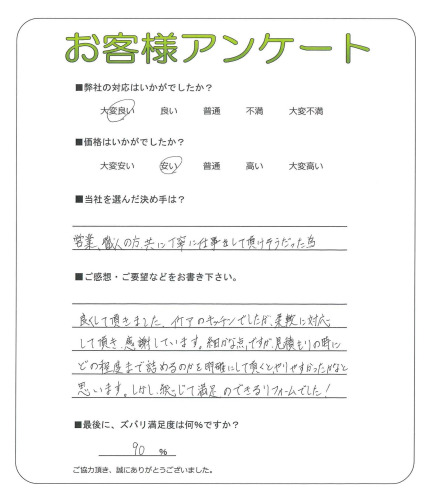 お客様アンケート
■弊社の対応はいかがでしたか?
大変良い 良い 普通 不満 大変不満
■価格はいかがでしたか?
大変安い 安い 普通 高い 大変高い
■当社を選んだ決め手は?
営業、職人の方、共に丁寧に仕事をして頂けそうだった為
■ご感想・ご要望などをお書き下さい。
良くして頂きました。イケアのキッチンでしたが、柔軟に対応
して頂き、感謝しています。細かな点ですが、見積もりの時に
どの程度まで詰めるのかを明確にして頂くとやりやすかったかなと
思います。しかし、総じて満足のできるリフォームでした!
■最後に、ズバリ満足度は何%ですか?
90 %
ご協力頂き、誠にありがとうございました。